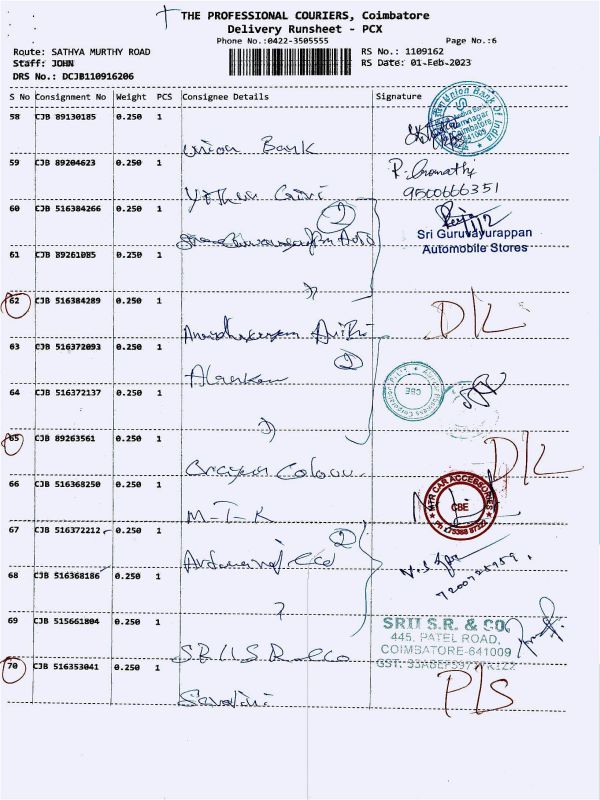 THE PROFESSIONAL COURIERS, Coimbatore
Delivery Runsheet - PCX
Phone No.:0422-3505555 Page No.:6
Route: SATHYA MURTHY ROAD RS No.: 1109162
Staff: JOHN RS Date: 01-Feb-2023
DRS No.: DCJB110916206
S No Consignment No Weight PCS Consignee Details Signature
58 CJB 89130185 0.250 1
Union Bank
Union Bank Of India
Coimbatore
641009
59 CJB 89204623 0.250 1
9500666351
60 CJB 516384266 0.250 1
2
Sri Guruvayurappan
Automobile Stores
61 CJB 89261085 0.250 1
62 CJB 516384289 0.250 1
D/L
63 CJB 516372093 0.250 1
2
CBE
64 CJB 516372137 0.250 1
65 CJB 89263561 0.250 1
Colour
D/L
66 CJB 516368250 0.250 1
M-T-K
MTR CAR ACCESSORIES
CBE
67 CJB 516372212 0.250 1
2
68 CJB 516368186 0.250 1
69 CJB 515661804 0.250 1
SRII S.R. & CO.
445, PATEL ROAD,
COIMBATORE-641009
70 CJB 516353041 0.250 1
P/S